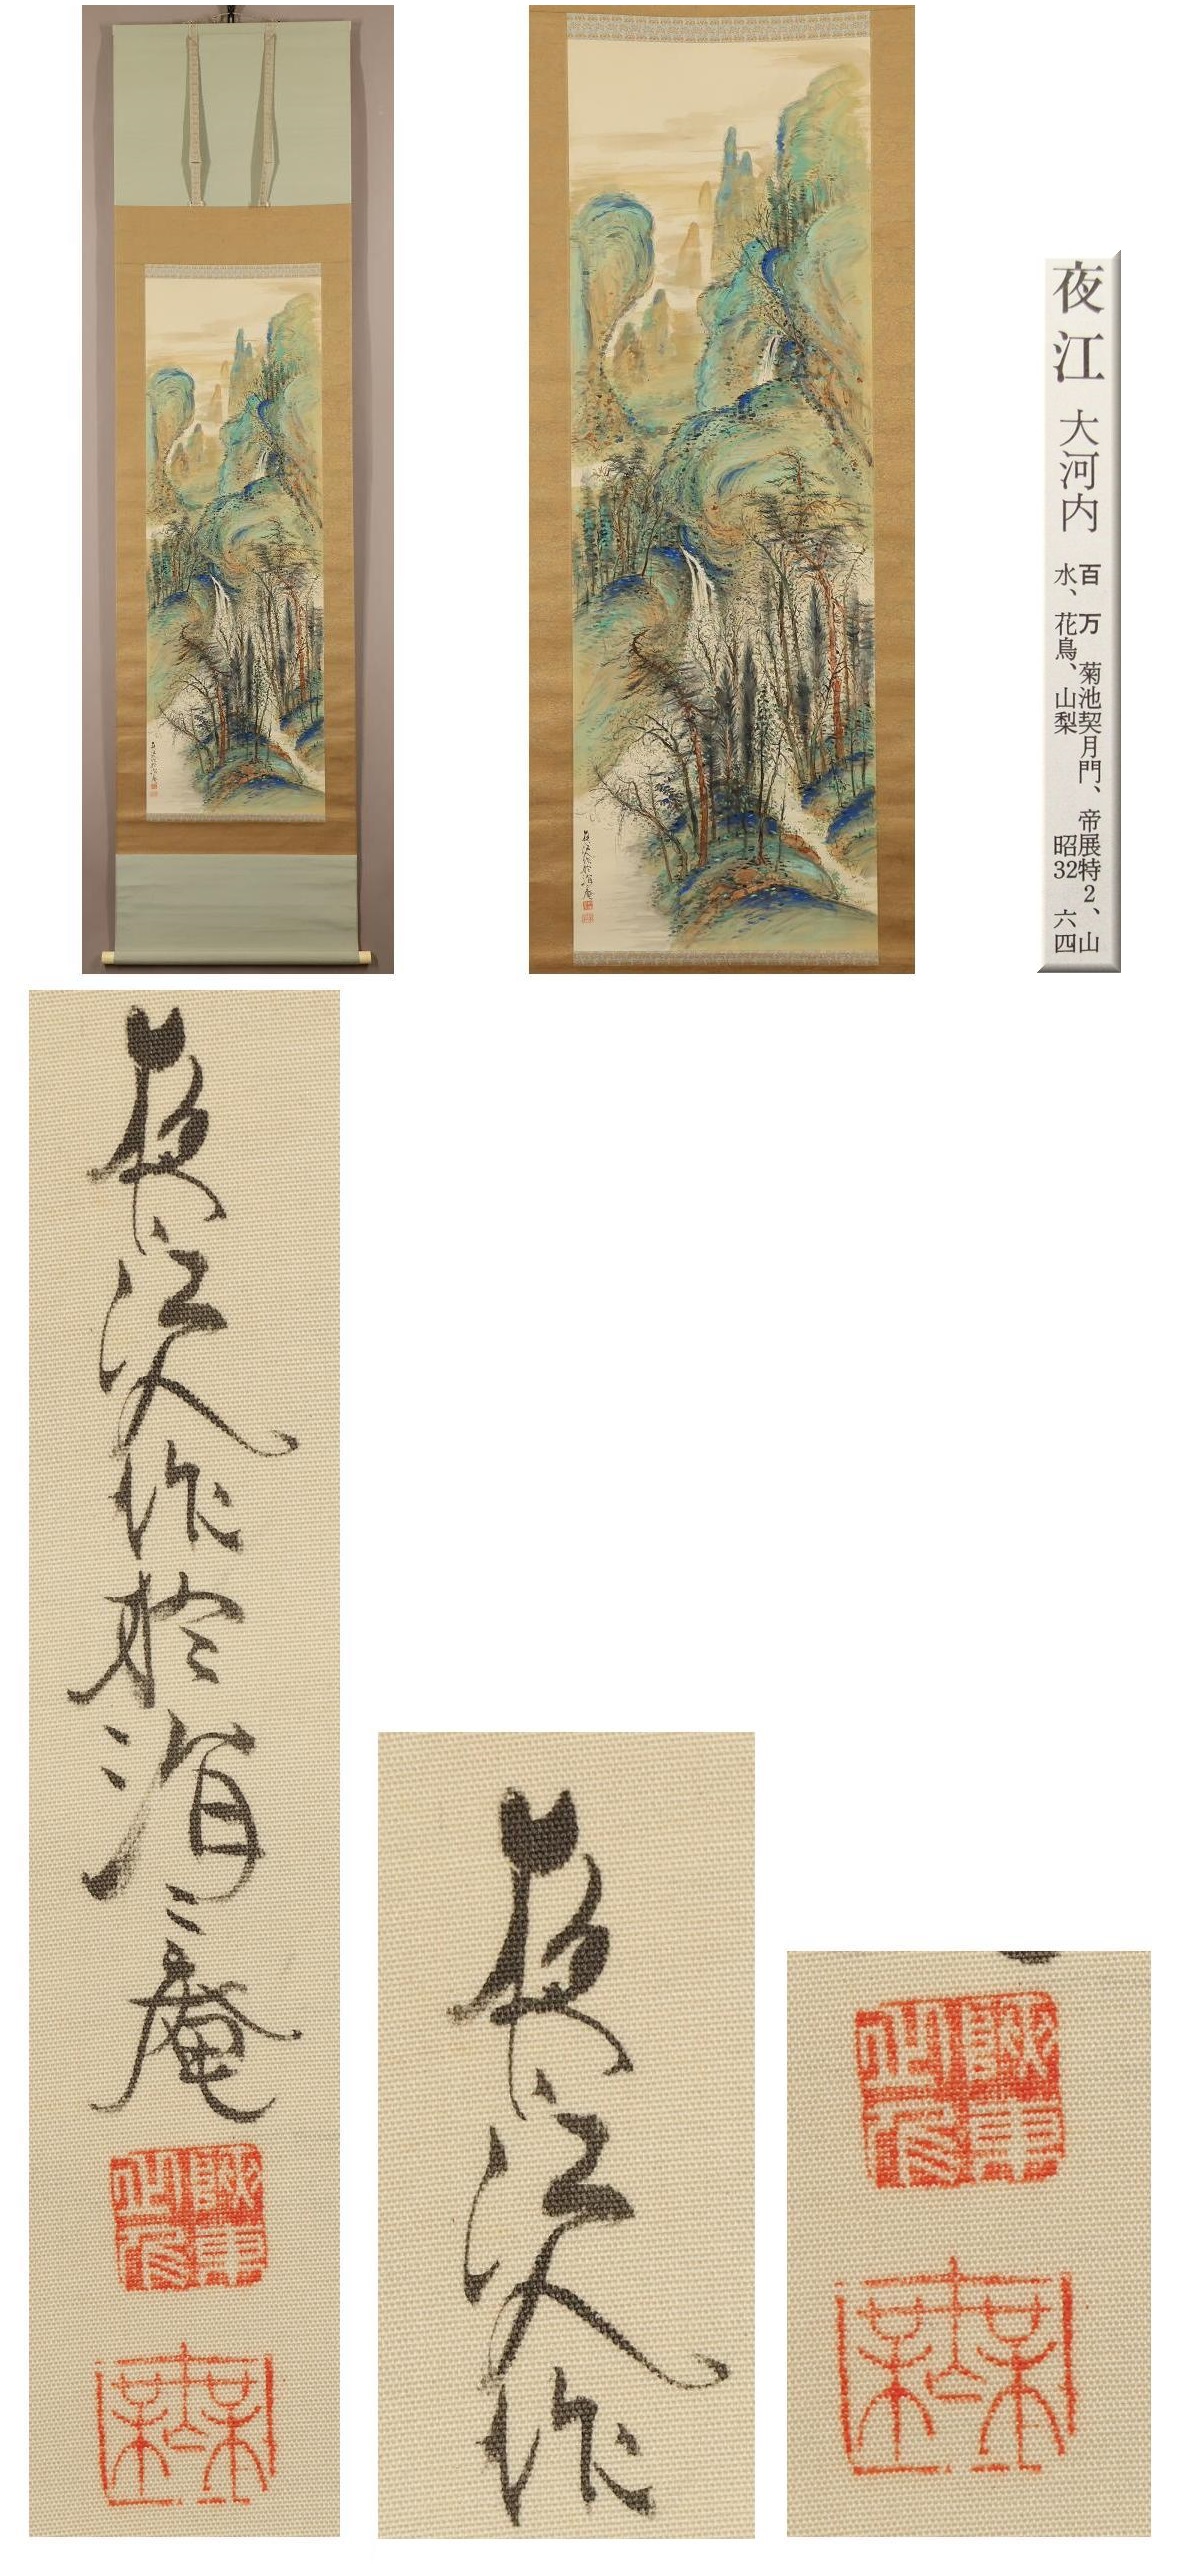 夜江 大河内 百万 菊池契月門、帝展特2、山
水、花鳥、山梨 昭32 六四
夜江人作於涓々庵
夜江人作